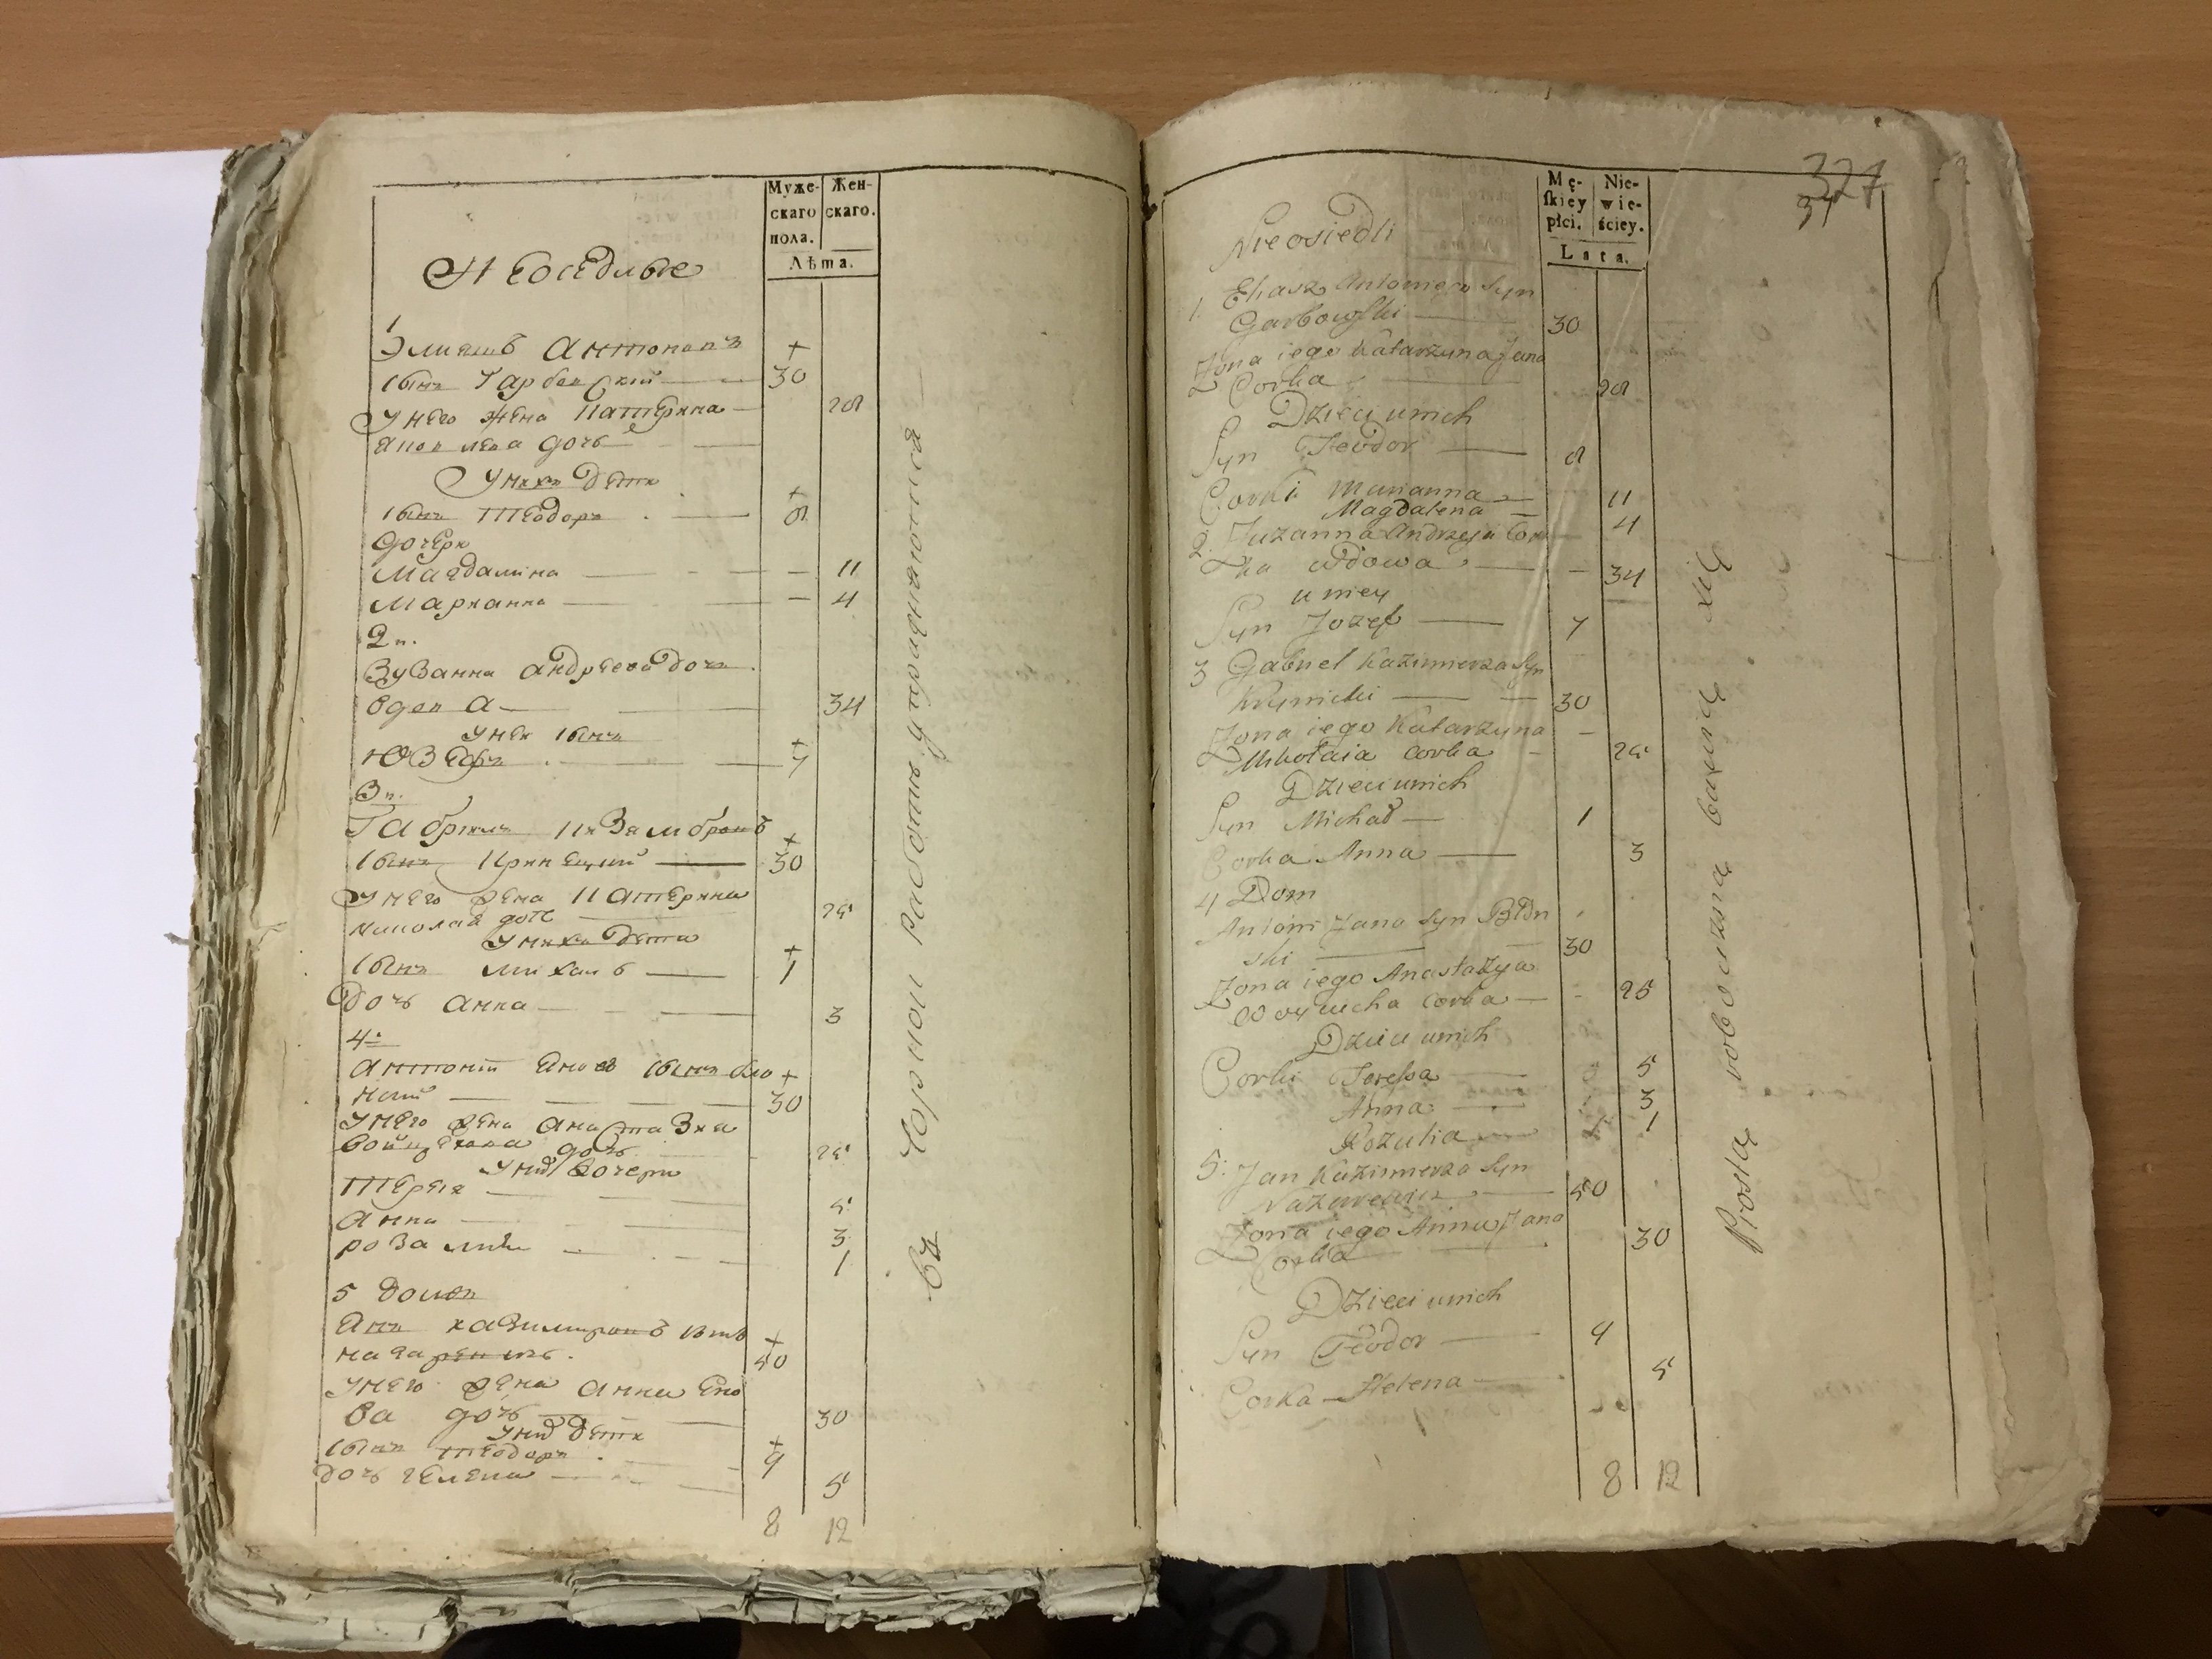 Муже-
скаго
пола.
Жен-
скаго.
Лѣта.
Неоседлые
1
Элиашъ Антоновъ
сынъ Гарбовский 30
У него жена Катерина 28
Янова дочь
У нихъ дети
сынъ Теодоръ 8
дочери
Магдалина 11
Марианна 4
2н.
Зузанна Андреева дочь
вдова 34
У ней сынъ
Юзефъ 7
3н.
Габриель Казимеровъ
сынъ Криницкий 30
У него жена Катерина
Николая дочь 25
У нихъ дети
сынъ Михаль 1
дочь Анна 3
4
Антоний Яновъ сынъ Бло
ний 30
У него жена Анастазия
Войцехова дочь 25
У нихъ дочери
Тереся 5
Анна 3
Розалия 1
5 домъ
Янъ Казимировъ сынъ
Назаревичъ 50
У него жена Анна Яно
ва дочь 30
У нихъ дети
сынъ Теодоръ 9
дочь Гелена 5
8 12
Въ чорной работе упражняются
327
37
Mę-
skiey
płci.
Nie-
wie-
ściey.
Lata.
Nieosiedli
1. Eliasz Antoniego Syn
Garbowski 30
Żona iego Katarzyna Jana
Corka 28
Dzieci u nich
Syn Teodor 8
Corki Marianna 11
Magdalena 4
2. Zuzanna Andrzeja Cor
ka wdowa 34
u niey
Syn Jozef 7
3 Gabriel Kazimierza Syn
Krynicki 30
Żona iego Katarzyna
Mikołaia corka 25
Dzieci u nich
Syn Michał 1
Corka Anna 3
4 Dom
Antoni Jana Syn Błon
ski 30
Żona iego Anastazya
Woyciecha corka 25
Dzieci u nich
Corki Teressa 5
Anna 3
Rozalia 1
5. Jan Kazimierza Syn
Nazarewicz 50
Żona iego Anna Jana
Corka 30
Dzieci u nich
Syn Teodor 9
Corka Helena 5
8 12
Prostą robocizną bawią się